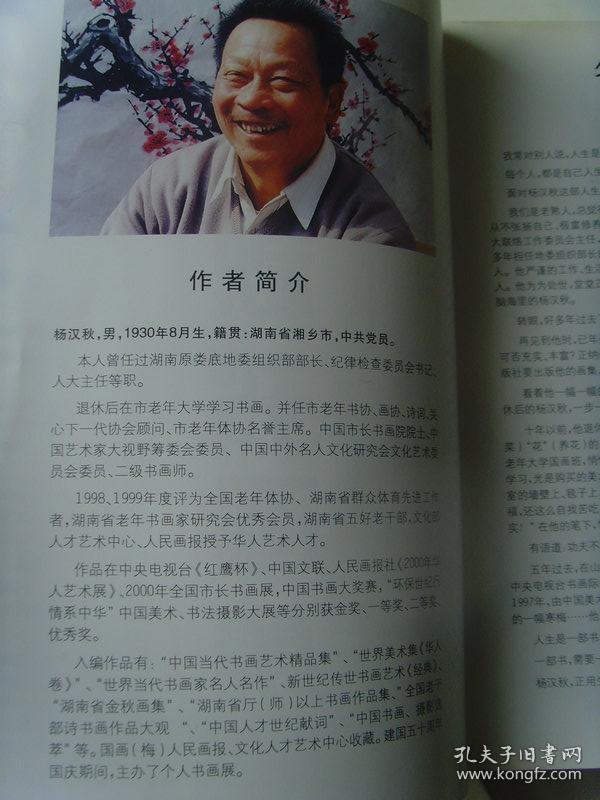 作者简介
杨汉秋，男，1930年8月生，籍贯：湖南省湘乡市，中共党员。
本人曾任过湖南原娄底地委组织部部长、纪律检查委员会书记、
人大主任等职。
退休后在市老年大学学习书画。并任市老年书协、画协、诗词、关
心下一代协会顾问、市老年体协名誉主席。中国市长书画院院士、中
国艺术家大视野筹委会委员、中国中外名人文化研究会文化艺术委
员会委员、二级书画师。
1998、1999年度评为全国老年体协、湖南省群众体育先进工作
者，湖南省老年书画家研究会优秀会员，湖南省五好老干部，文化部
人才艺术中心、人民画报授予华人艺术人才。
作品在中央电视台《红鹰杯》、中国文联、人民画报社《2000年华
人艺术展》、2000年全国市长书画展，中国书画大奖赛，“环保世纪行
情系中华”中国美术、书法摄影大展等分别获金奖、一等奖、二等奖、
优秀奖。
入编作品有：“中国当代书画艺术精品集”、“世界美术集《华人
卷》”、“世界当代书画家名人名作”、新世纪传世书画艺术《经典》、
“湖南省金秋画集”、“湖南省厅（师）以上书画作品集、“全国老干
部诗书画作品大观 “、“中国人才世纪献词”、“中国书画、摄影选
萃”等。国画（梅）人民画报、文化人才艺术中心收藏。建国五十周年
国庆期间，主办了个人书画展。
我常对别人说，人生是
每个人，都是自己人生
面对杨汉秋这部人生
我们是老熟人，总觉得
从不张扬自己、极富修养
大联络工作委员会主任，
多年担任地委组织部长的
人。他严谨的工作、生活
人。他为为处世，堂堂正
脑海里的杨汉秋。
转眼，好多年过去了
再见到他时，已是
可否充实、丰富？正纳
版社要出版他的画集，
看着他一幅一幅的
休后的杨汉秋，一步一
十年以前，他退休
菜）“花”（养花）的
老年大学国画班，悄
学习，光是购买的美术
室的墙壁上、毯子上
福，还这么自找苦吃
实！”在他的笔下，
有语道，功夫不
五年过去，在山
中央电视台书画研
1997年，由中国美术
的一幅寒梅……他
人生是一部书，
一部书，需要一
杨汉秋，正用生
孔夫子旧书网
www.kongfz.com